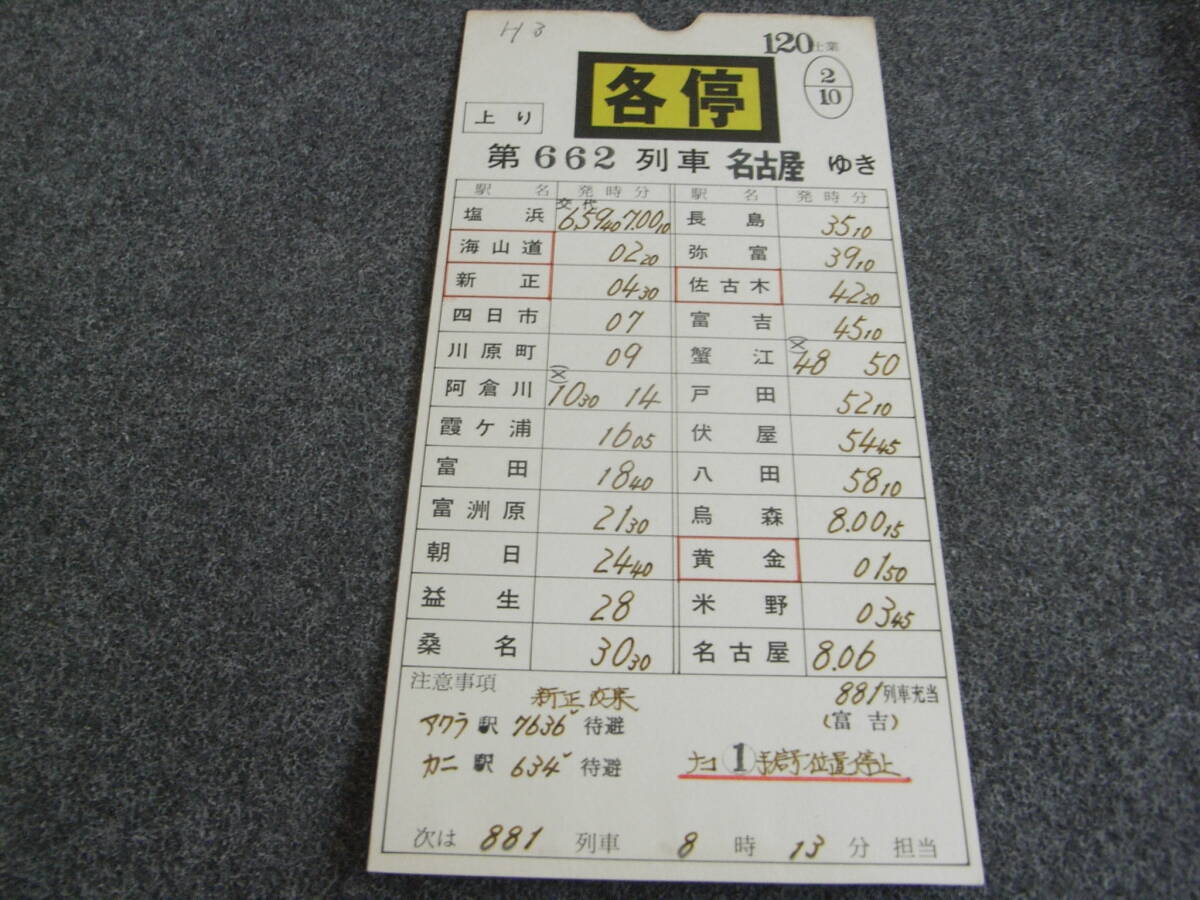 H3
120仕業
2
10
各停
上り
第662列車 名古屋 ゆき
駅名 発時分 駅名 発時分
交代
塩浜 6,5940 7.0010 長島 3510
海山道 0220 弥富 3910
新正 0430 佐古木 4220
四日市 07 富吉 4510
川原町 09 蟹江 (×) 48 50
阿倉川 (×) 1030 14 戸田 5210
霞ケ浦 1605 伏屋 5445
富田 1840 八田 5810
富洲原 2130 烏森 8.0015
朝日 2440 黄金 0150
益生 28 米野 0345
桑名 3030 名古屋 8.06
注意事項
新正
881列車充当
(富吉)
アクラ駅 7636 待避
カニ駅 634 待避
ナコ 1 位置停止
次は 881 列車 8 時 13 分 担当